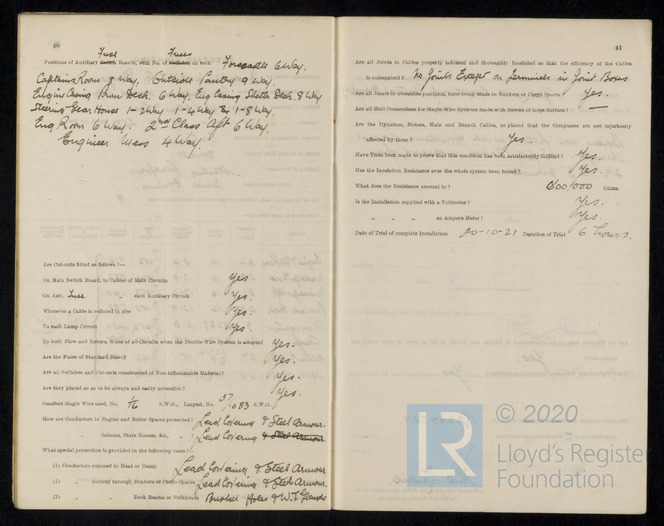 40
Fuse Fuses
Positions of Auxiliary Switch Boards, with No. of Switches on each Forecastle 6 Way.
Captains Room 8 Way. Outside Pantry 9 Way.
Engine Casing Prom Deck. 6 Way. Eng Casing Shelter Deck. 8 Way
Steering Gear House 1-2 Way 1-4 Way & 1-8 Way.
Eng Room 6 Way. 2nd Class Aft 6 Way.
Engineer Mess 4 Way.
Are Cut-outs fitted as follows?—
On Main Switch Board, to Cables of Main Circuits Yes
On Aux. Fuse „ each Auxiliary Circuit Yes.
Wherever a Cable is reduced in size Yes.
To each Lamp Circuit Yes.
To both Flow and Return Wires of all Circuits when the Double-Wire System is adopted Yes.
Are the Fuses of Standard Sizes? Yes.
Are all Switches and Cut-outs constructed of Non-inflammable Material? Yes.
Are they placed so as to be always and easily accessible? Yes.
Smallest Single Wire used, No. 1/16 S.W.G., Largest, No. 37/.083 S.W.G.
How are Conductors in Engine and Boiler Spaces protected? Lead Covering & Steel Armour.
„ Saloons, State Rooms, &c., „ ? Lead Covering & Steel Armour.
What special protection is provided in the following cases?—
(1) Conductors exposed to Heat or Damp Lead Covering & Steel Armour
(2) „ passing through Bunkers or Cargo Spaces Lead Covering & Steel Armour.
(3) „ „ Deck Beams or Bulkheads Bushed Holes & W.T. Glands
41
Are all Joints in Cables properly soldered and thoroughly insulated so that the efficiency of the Cables
is unimpaired? No Joints Except on Terminals in Joint Boxes
Are all Joints in accessible positions, none being made in Bunkers or Cargo Spaces? Yes.
Are all Hull Connections for Single-Wire Systems made with Screws of large Surface? —
Are the Dynamos, Motors, Main and Branch Cables, so placed that the Compasses are not injuriously
affected by them? Yes.
Have Tests been made to prove that this condition has been satisfactorily fulfilled? Yes.
Has the Insulation Resistance over the whole system been tested? Yes.
What does the Resistance amount to? 600,000 Ohms.
Is the Installation supplied with a Voltmeter? Yes.
„ „ „ an Ampere Meter? Yes.
Date of Trial of complete Installation 20-10-21 Duration of Trial 6 hours.
LR © 2020
Lloyd's Register
Foundation